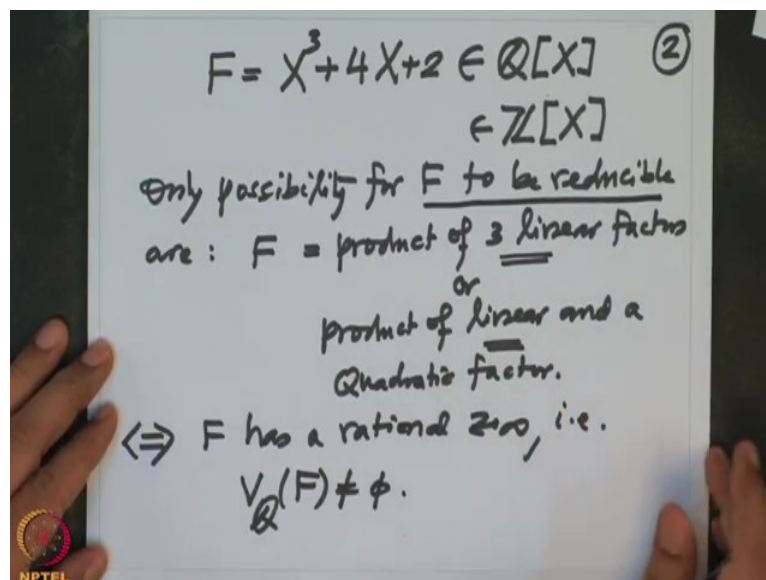 F = X³ + 4X + 2 ∈ ℚ[X] ②
∈ ℤ[X]
Only possibility for F to be reducible
are : F = product of 3 linear factors
or
product of linear and a
Quadratic factor.
⇔ F has a rational zero, i.e.
V_ℚ(F) ≠ ϕ.
NPTEL